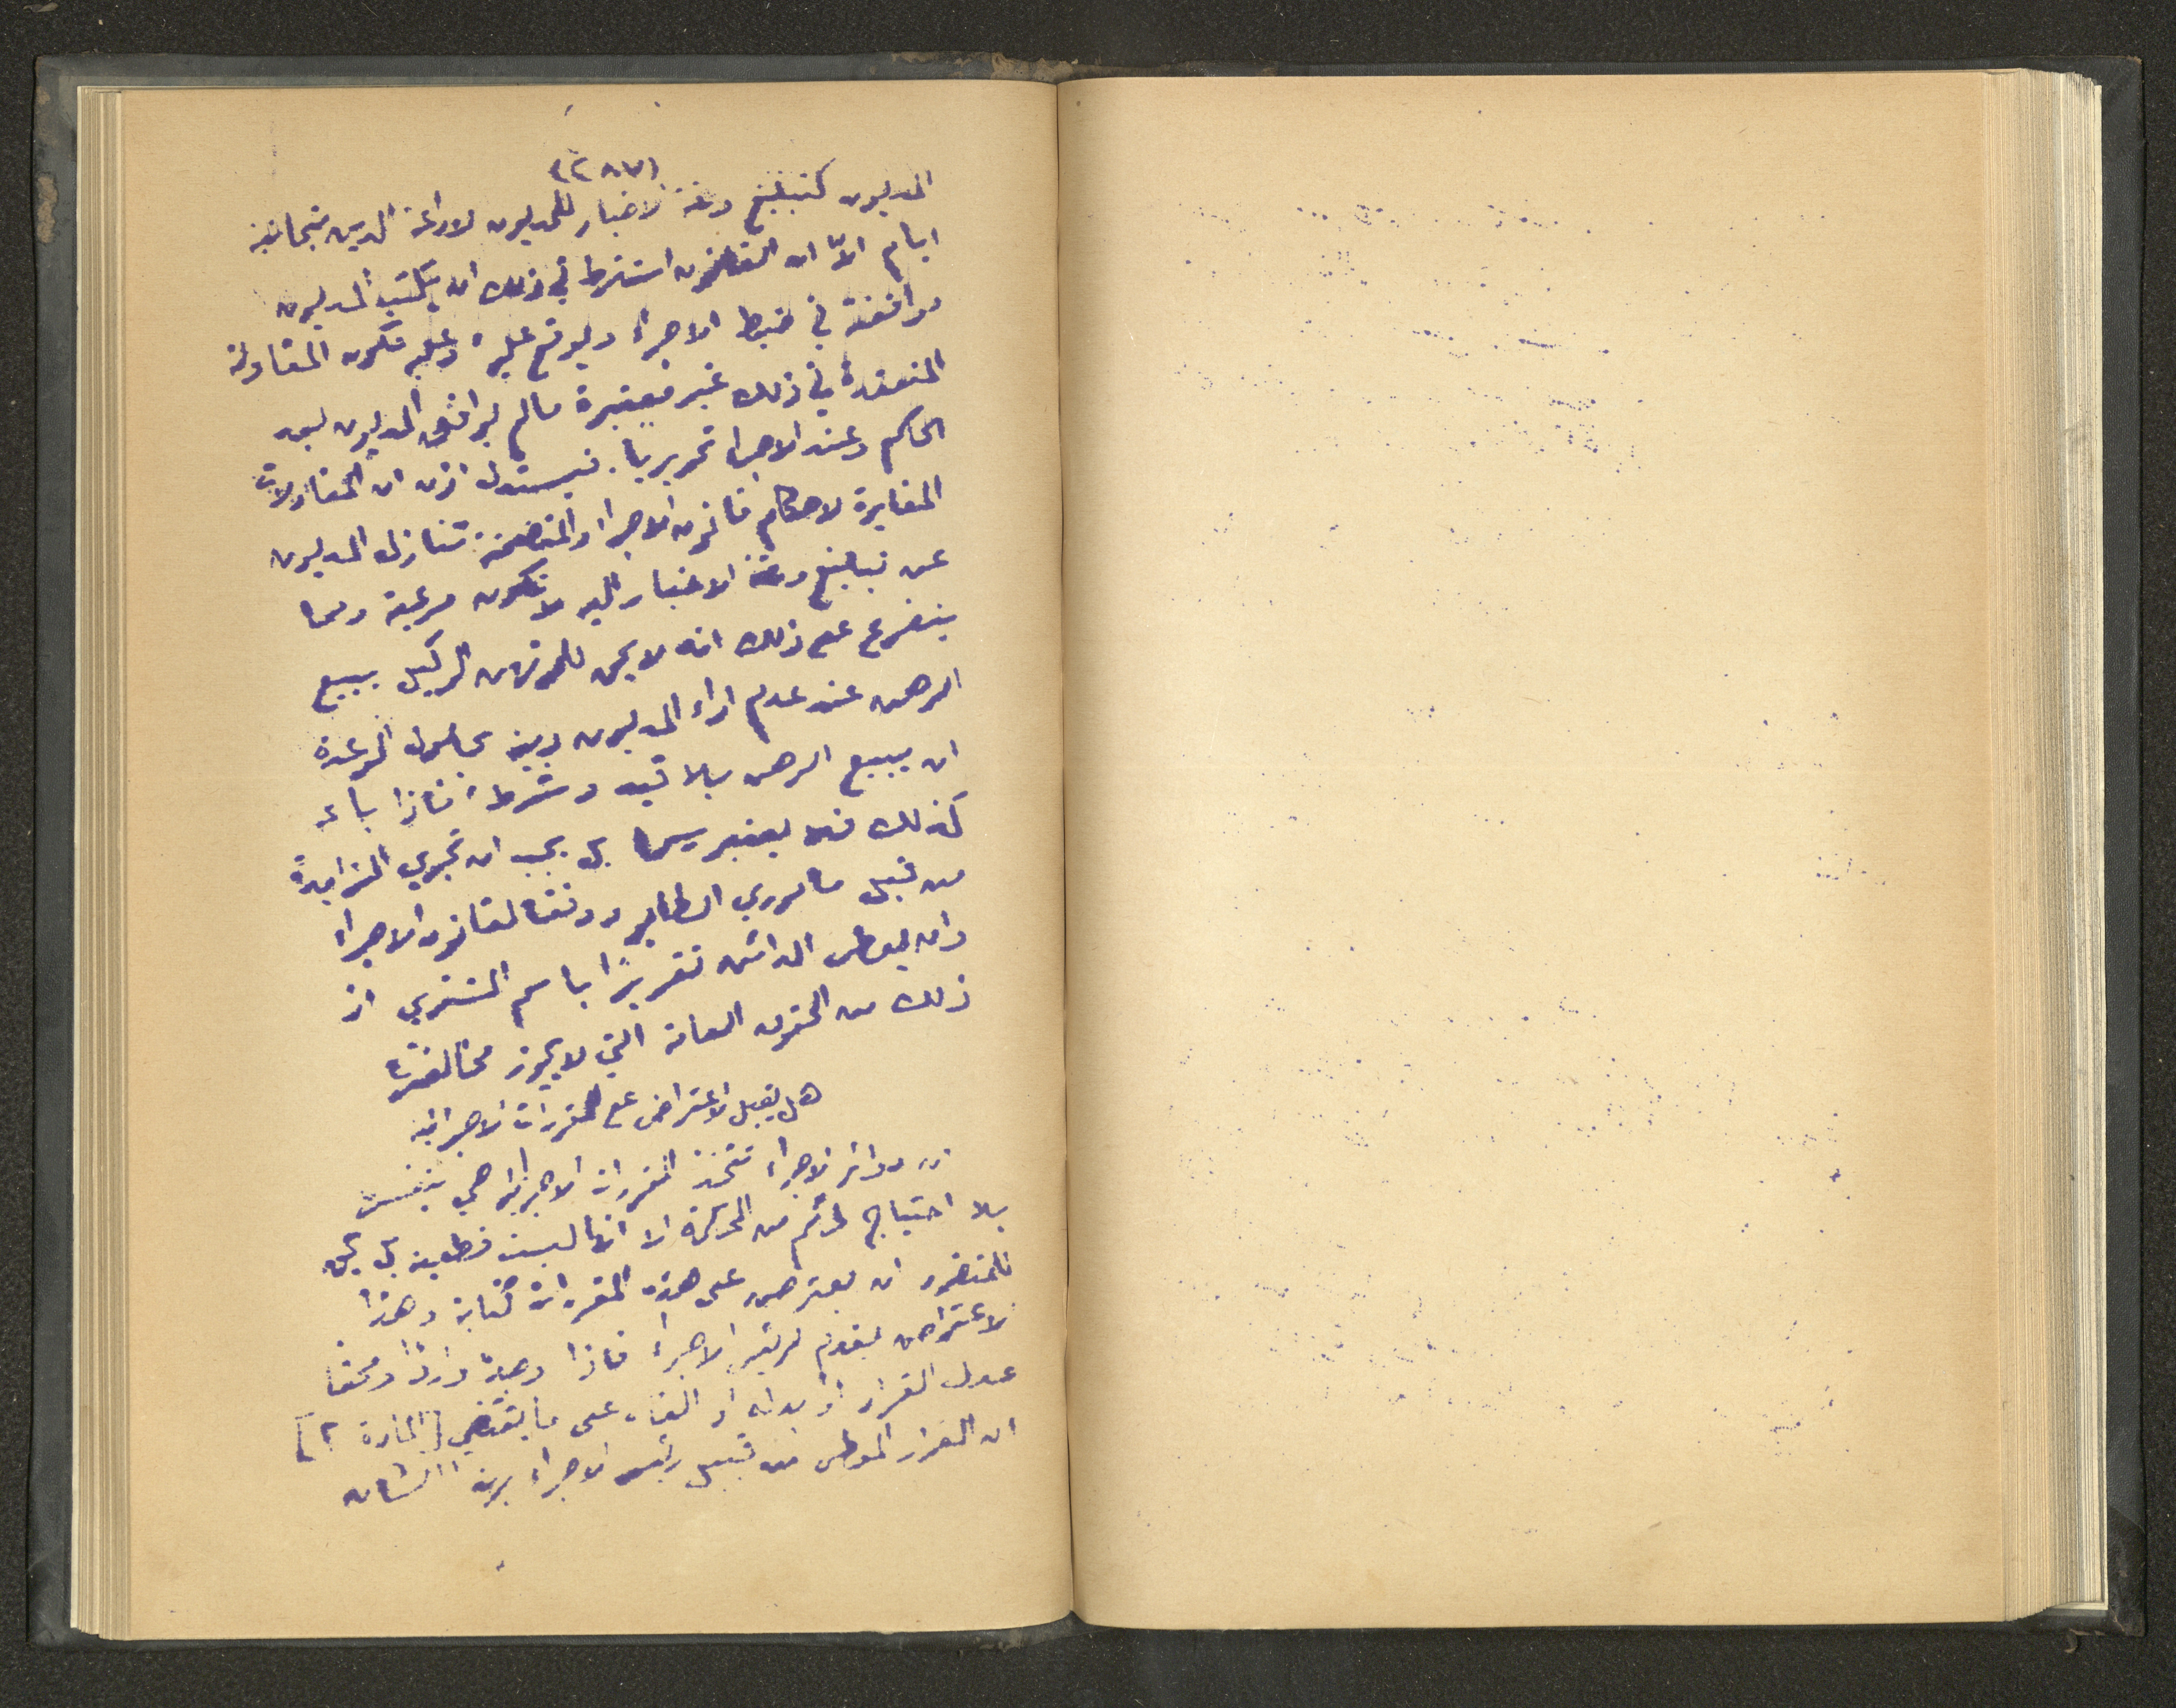 (٢٨٧)
المديون كتبليغ ورقة الاخبار للمديون لاداعة الدين بثمانية
ايام الاّ ان القانون اشترط في ذلك ان يكتب المديون
موافقته في ضبط الاجراء ويوقع عليه وعليه تكون المقاولة
المنعقدة في ذلك غير معتبرة مالم يوافق المديون لبعد
الحاكم وعند الاجرا تحريريا. فيستدل اذن ان المقاولات
المغايرة لاحكام قانون الاجرا والمتضمنة تنازل المديون
عن تبليغ ورقة الاخبار اليه لا تكون مرعية ومما
يتفرع على ذلك انه لا يحق للمرتهن الوكيل ببيع
الرهن عند عدم اداء المديون دينه بحلول الوعدة
ان يبيع الرهن بلا قيد وشرط، فاذا باعه
كذلك فلا يعتبر رسما بل يجب ان تجري المزايدة
من قبل مأموري الطابو ووفقا لقانون الاجراء
وان يعطى الدائن تقريرًا باسم المشتري اذ
ذلك من الحقوق العامة التي لا يجوز مخالفتها
هل يقبل الاعتراض على المقررات الاجرائية
ان دوائر الاجراء تتخذ المقررات الاجرائية هي بنفسها
بلا احتياج لحكم من المحكمة الا انها ليست قطعية بل يحق
للمتضرر ان يعترض على هذه المقررات كتابة وهذا
الاعتراض يقدم لرئيس الاجراء فاذا وجده واردًا ومحقا
عدل القرار او بدله او الغاه على ما يقتضي [المادة ٢]
ان القرار المعطى من قبل رئيس الاجراء بهذا الشان